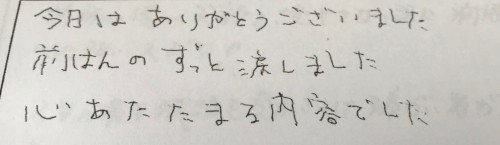 今日はありがとうございました
前はんのずっと涙しました
心あたたまる内容でした